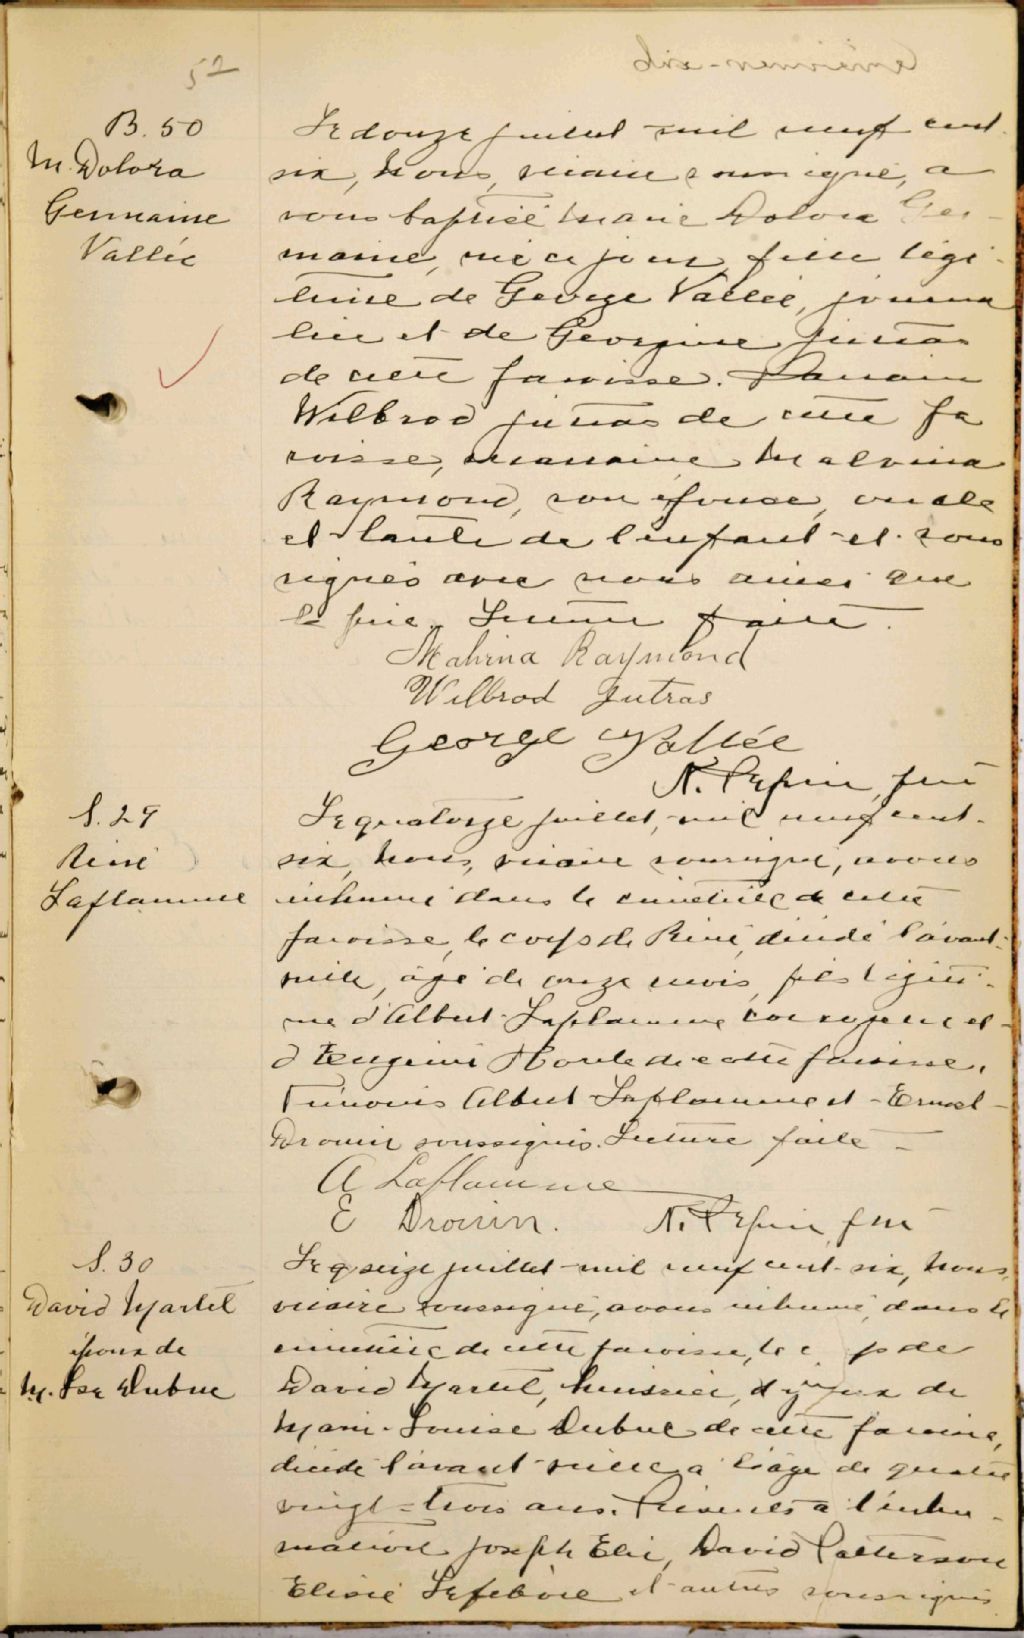 52
B. 50
M. Dolora
Germaine
Vallée
Le douze juillet mil neuf cent
six, Nous, vicaire soussigné, a
vons baptisé Marie Dolora Ger-
maine, née ce jour, fille légi-
time de George Vallée, journa
lier et de Georgine Jutras
de cette paroisse. Parrain
Wilbrod Jutras de cette pa
roisse, marraine Malvina
Raymond, son épouse, oncle
et tante de l'enfant et sous
signés avec nous ainsi que
le père. Lecture faite.
Malvina Raymond
Wilbrod Jutras
George Vallée
N. Pepin, ptre
S. 29
René
Laflamme
Le quatorze juillet, mil neuf cent-
six, Nous, vicaire soussigné, avons
inhumé dans le cimetière de cette
paroisse, le corps de René, décédé l'avant-
veille, âgé de onze mois, fils légiti-
me d'Albert Laflamme corroyeur et
d'Eugénie Houle de cette paroisse.
Témoins Albert Laflamme et Ernest
Drouin soussignés. Lecture faite
A Laflamme
E Drouin. N. Pepin, ptre
S. 30
David Martel
époux de
M. Lse Dubuc
Le seize juillet mil neuf cent-six, Nous,
vicaire soussigné, avons inhumé, dans le
cimetière de cette paroisse, le c ps de
David Martel, huissier, époux de
Marie-Louise Dubuc de cette paroisse,
décédé l'avant-veille à l'âge de quatre
vingt-trois ans. Présents à l'inhu-
mation Joseph Elie, David Patterson
Elisée Lefebvre et autres soussignés